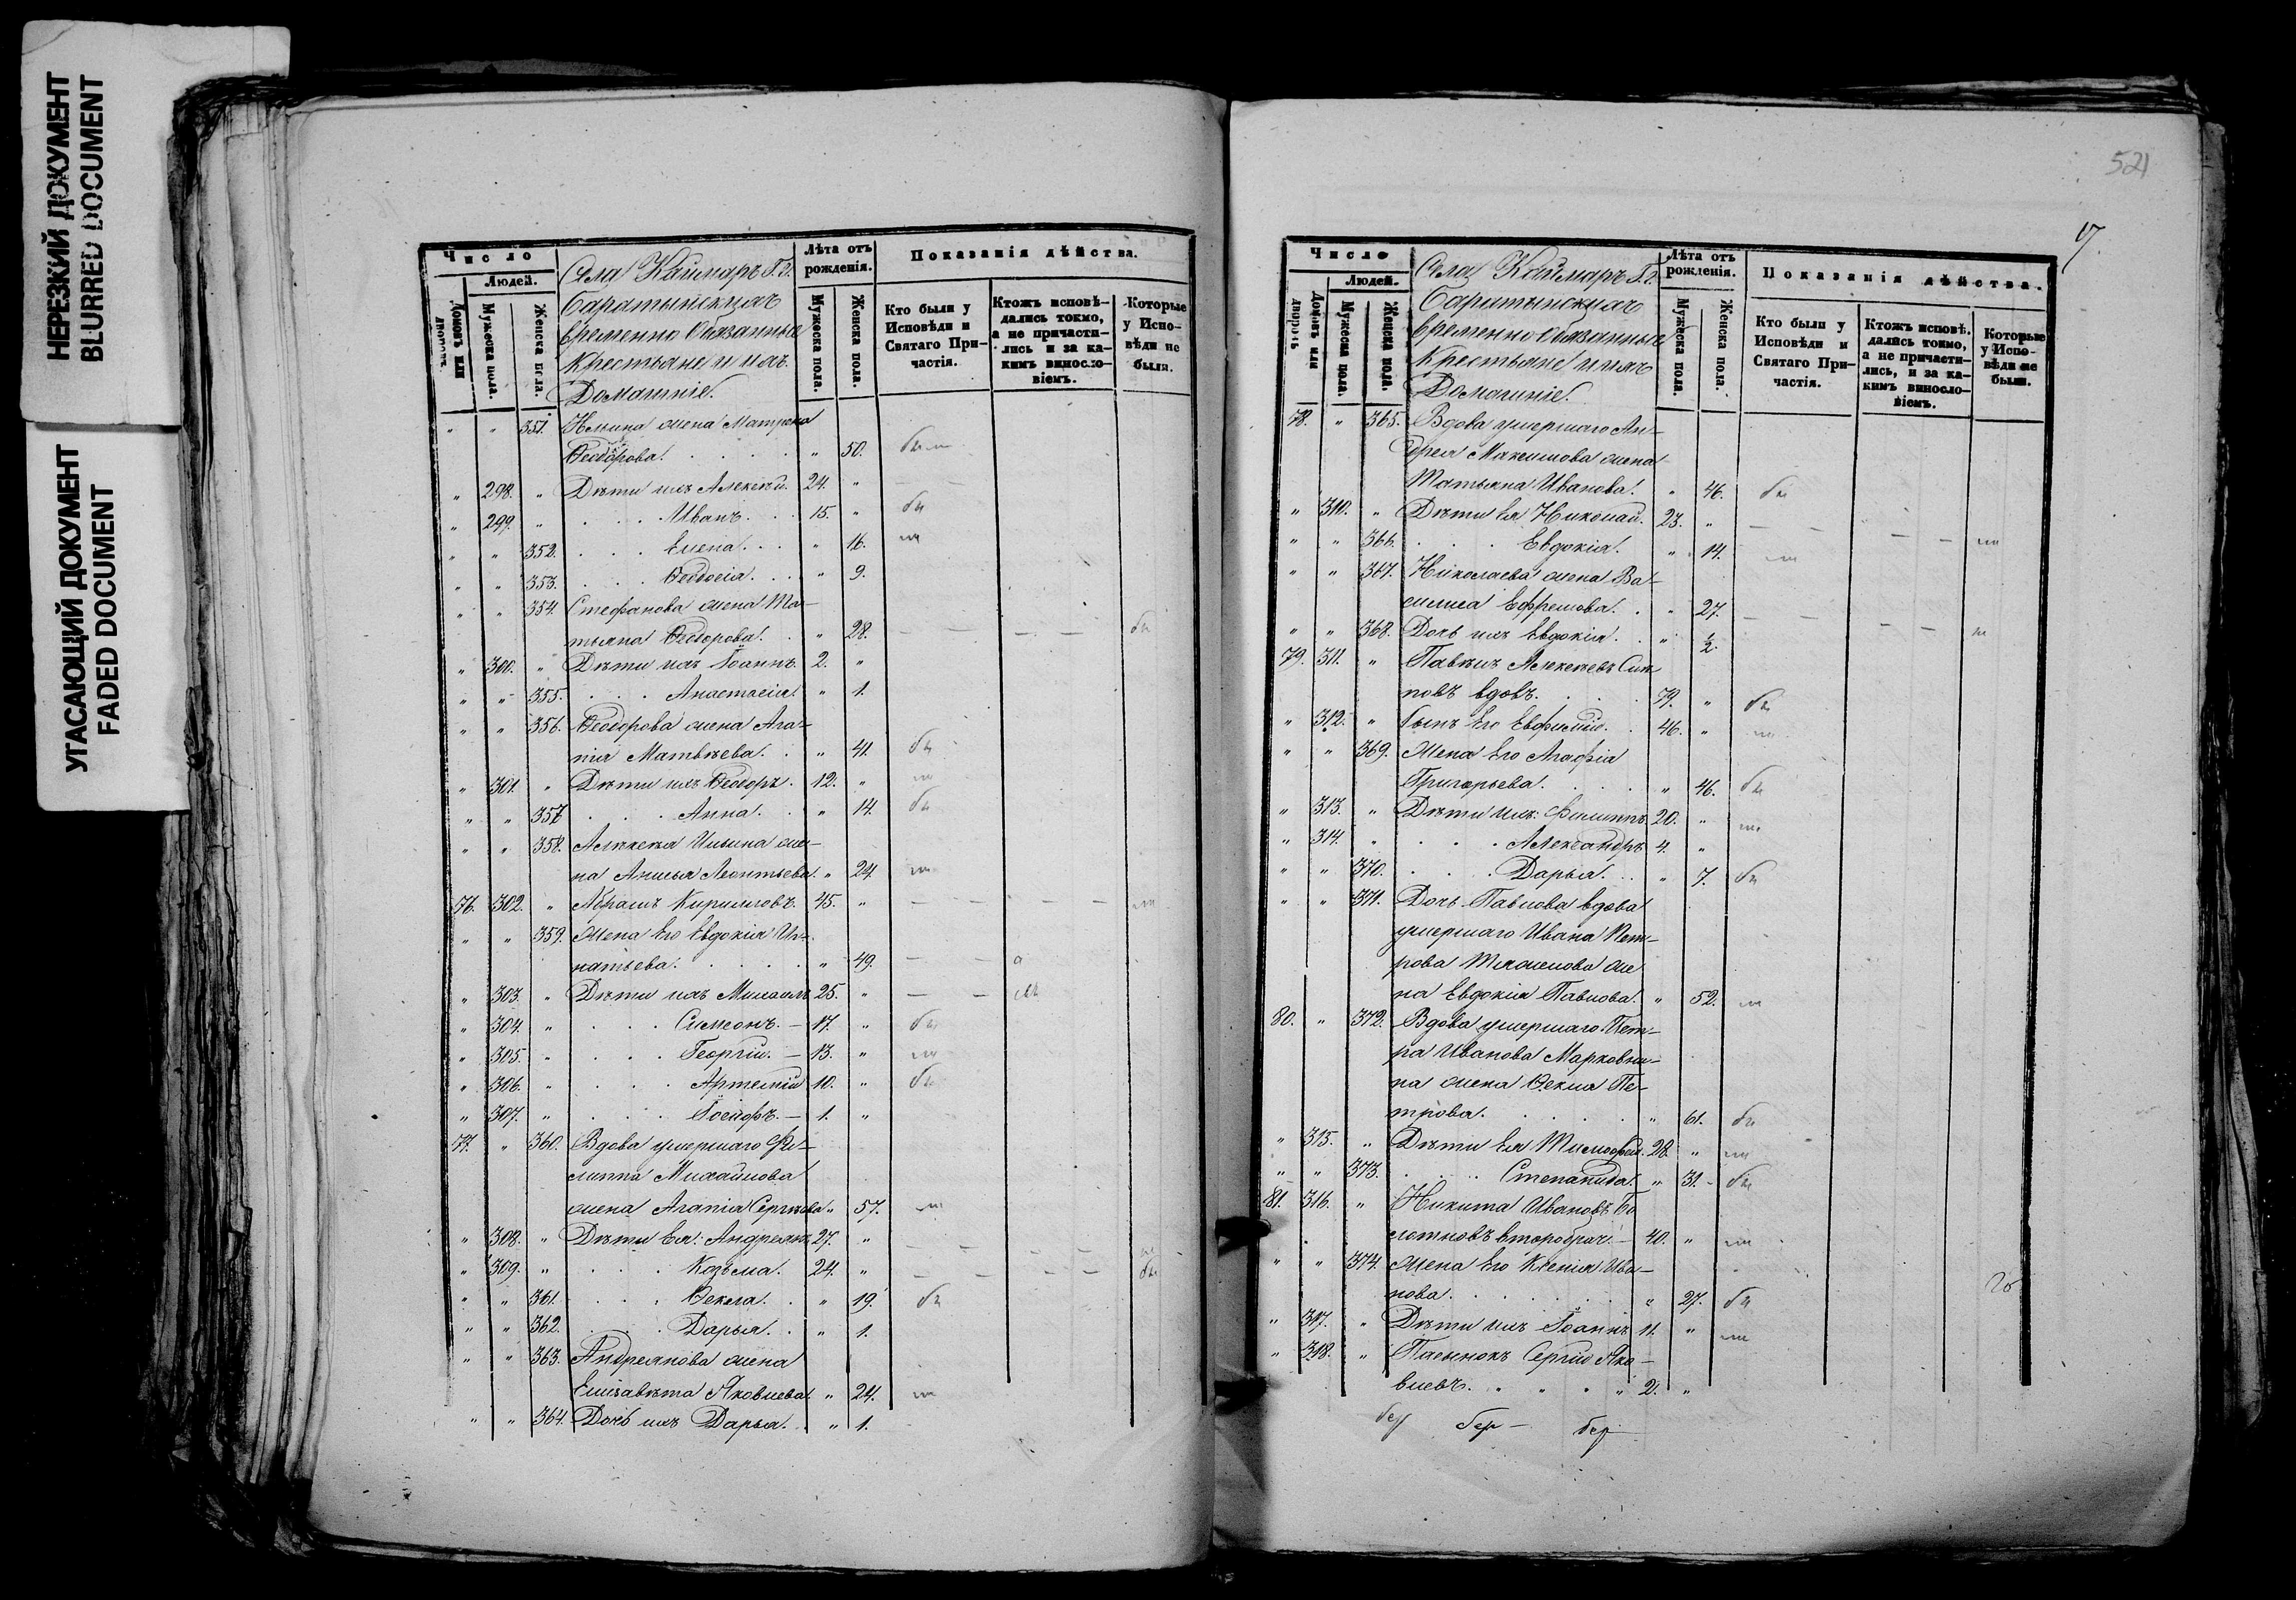 НЕРЕЗКИЙ ДОКУМЕНТ
BLURRED DOCUMENT
УГАСАЮЩИЙ ДОКУМЕНТ
FADED DOCUMENT
Число
Людей.
Домовъ или дворовъ.
Мужеска пола.
Женска пола.
Села Каймаръ Г. г.
Баратынскихъ
временно обязанные
Крестьяне и ихъ
Домашніе.
Лѣта отъ рожденія.
Мужеска пола.
Женска пола.
Показанія дѣйства.
Кто были у Исповѣди и Святаго Причастія.
Ктожъ исповѣ-
дались токмо,
а не причасти-
лись и за ка-
кимъ винносло-
віемъ.
Которые
у Испо-
вѣди не
были.
" " 351. Ильина жена Матрена
Ѳеодорова. " 50.
" 298. " Дѣти ихъ Алексѣй. 24. "
" 299. " Иванъ. 15. "
" " 352. Елена. " 16.
" " 353. Ѳеодосія. " 9.
" " 354. Стефанова жена Та-
тьяна Ѳедорова. " 28.
" 300. " Дѣти ихъ Іоаннъ. 2. "
" " 355. Анастасія " 1.
" " 356. Ѳеодорова жена Ага-
пія Матвѣева. " 41.
" 301. " Дѣти ихъ Ѳеодоръ. 12. "
" " 357 Анна. " 14.
" " 358. Алексѣя Ильина же-
на Анисья Леонтьева. " 24.
76. 302. " Абрамъ Кирилловъ. 45. "
" " 359. Жена Его Евдокія Иг-
натьева. " 49.
" 303. " Дѣти ихъ Михаилъ 25. "
" 304. " Симеонъ. 17. "
" 305. " Георгій. 13. "
" 306. " Артемій 10. "
" 307. " Іосифъ. 1. "
77. " 360. Вдова умершаго Фи-
липпа Михайлова
жена Агапія Сергѣева " 57.
" 308. " Дѣти Ея: Андреянъ 27. "
" 309. " Козьма. 24. "
" " 361. Ѳекла. " 19.
" " 362. Дарья. " 1.
" " 363. Андреянова жена
Елизавѣта Яковлева. " 24.
" " 364. Дочь ихъ Дарья. " 1.
521
Число
Людей.
Домовъ или дворовъ
Мужеска пола.
Женска пола.
Села Каймаръ Г. г.
Баратынскихъ
временно обязанные
Крестьяне и ихъ
Домашніе.
Лѣта отъ рожденія.
Мужеска пола.
Женска пола.
Показанія дѣйства.
Кто были у Исповѣди и Святаго Причастія.
Ктожъ исповѣ.
дались токмо,
а не причасти-
лись, и за ка-
кимъ винносло-
віемъ.
Которые
у Испо-
вѣди не
были.
78. " 365. Вдова умершаго Ан-
дрея Максимова жена
Татьяна Иванова. " 46.
" 310. " Дѣти Ея Николай. 23. "
" " 366. Евдокія. " 14.
" " 367. Николаева жена Ва-
силиса Ефремова. " 27.
" " 368. Дочь ихъ Евдокія. " ½.
79. 311. " Павелъ Алексѣевъ
новъ вдовъ. 79. "
" 312. " Сынъ Его Евфимій. 46. "
" " 369. Жена Его Агафія
Григорьева. " 46.
" 313. " Дѣти ихъ: Филиппъ 20. "
" 314. " Александръ 4. "
" " 370. Дарья. " 7.
" " 371. Дочь Павлова вдова
умершаго Ивана Пет-
рова же-
на Евдокія Павлова. " 52.
80. " 372. Вдова умершаго Пет-
ра Иванова Марковки-
на жена Ѳекла Пе-
трова. " 61.
" 315. " Дѣти Ея Тимофей. 28. "
" " 373. Степанида. " 31.
81. 316. " Никита Ивановъ Бо
лотновъ второбрач. 40. "
" " 374. Жена Его Ксенія Ива-
нова. " 27.
" 317. " Дѣти ихъ Іоаннъ 11. "
" 318. " Пасынокъ Сергій Яко-
влевъ. 2. "